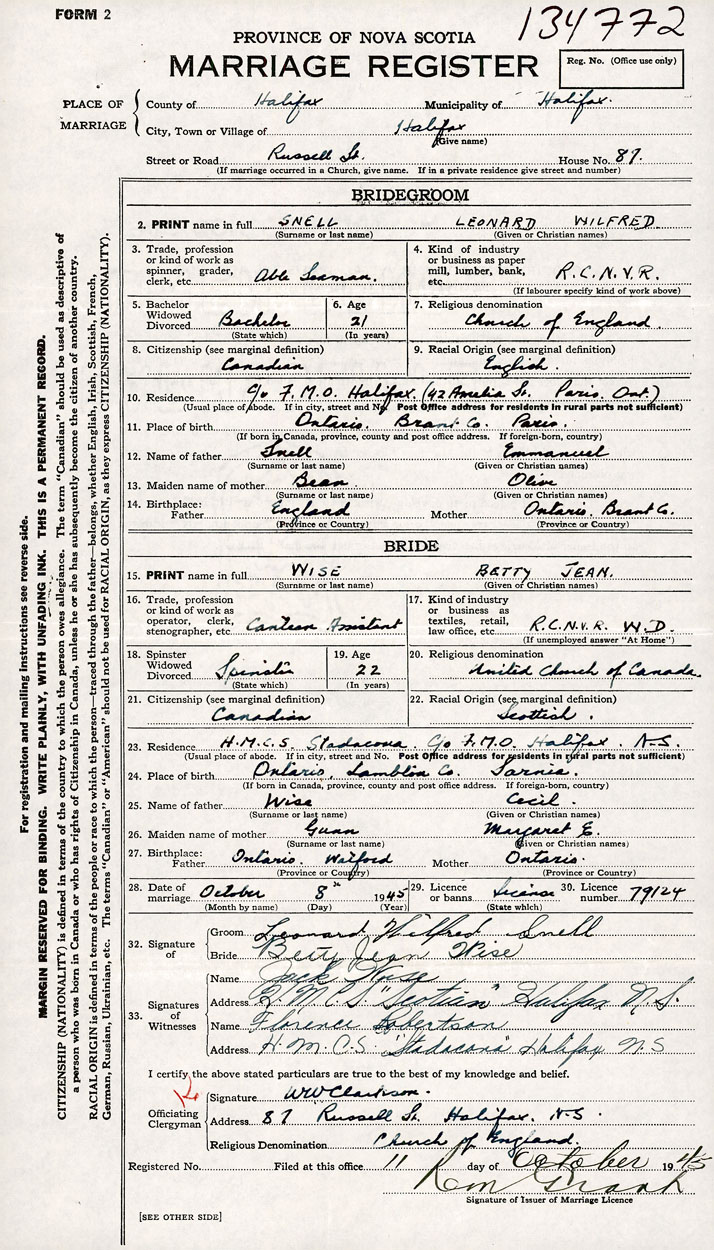 FORM 2
134772
PROVINCE OF NOVA SCOTIA
MARRIAGE REGISTER
Reg. No. (Office use only)
PLACE OF MARRIAGE
County of Halifax Municipality of Halifax.
City, Town or Village of Halifax
(Give name)
Street or Road Russell St. House No. 87.
(If marriage occurred in a Church, give name. If in a private residence give street and number)
BRIDEGROOM
2. PRINT name in full SNELL LEONARD WILFRED
(Surname or last name) (Given or Christian names)
3. Trade, profession or kind of work as spinner, grader, clerk, etc. Able Seaman.
4. Kind of industry or business as paper mill, lumber, bank, etc. R.C.N.V.R.
(If labourer specify kind of work above)
5. Bachelor Widowed Divorced Bachelor (State which)
6. Age 21 (In years)
7. Religious denomination Church of England.
8. Citizenship (see marginal definition) Canadian
9. Racial Origin (see marginal definition) English.
10. Residence c/o F.M.O. Halifax. (42 Amelia St. Paris. Ont.)
(Usual place of abode. If in city, street and No. Post Office address for residents in rural parts not sufficient)
11. Place of birth Ontario. Brant Co. Paris.
(If born in Canada, province, county and post office address. If foreign-born, country)
12. Name of father Snell Emmanuel
(Surname or last name) (Given or Christian names)
13. Maiden name of mother Bean Olive
(Surname or last name) (Given or Christian names)
14. Birthplace: Father England Mother Ontario. Brant Co.
(Province or Country) (Province or Country)
BRIDE
15. PRINT name in full WISE BETTY JEAN.
(Surname or last name) (Given or Christian names)
16. Trade, profession or kind of work as operator, clerk, stenographer, etc. Canteen Assistant
17. Kind of industry or business as textiles, retail, law office, etc. R.C.N.V.R. W.D.
(If unemployed answer "At Home")
18. Spinster Widowed Divorced Spinster (State which)
19. Age 22 (In years)
20. Religious denomination United Church of Canada.
21. Citizenship (see marginal definition) Canadian
22. Racial Origin (see marginal definition) Scottish.
23. Residence H.M.C.S. Stadacona. c/o F.M.O. Halifax. N.S.
(Usual place of abode. If in city, street and No. Post Office address for residents in rural parts not sufficient)
24. Place of birth Ontario, Lambton Co. Sarnia.
(If born in Canada, province, county and post office address. If foreign-born, country)
25. Name of father Wise Cecil.
(Surname or last name) (Given or Christian names)
26. Maiden name of mother Gunn Margaret E.
(Surname or last name) (Given or Christian names)
27. Birthplace: Father Ontario. Watford Mother Ontario.
(Province or Country) (Province or Country)
28. Date of marriage October 8th 1945
(Month by name) (Day) (Year)
29. Licence or banns License (State which)
30. Licence number 79124
32. Signature of
Groom Leonard Wilfred Snell
Bride Betty Jean Wise
33. Signatures of Witnesses
Name Jack
Address H.M.C.S. "Scotian" Halifax N.S.
Name Florence Robertson
Address H.M.C.S. "Stadacona" Halifax N.S
I certify the above stated particulars are true to the best of my knowledge and belief.
Officiating Clergyman
Signature
Address 87 Russell St. Halifax. N.S.
Religious Denomination Church of England.
Registered No. Filed at this office 11 day of October 1945
Signature of Issuer of Marriage Licence
[SEE OTHER SIDE]
For registration and mailing instructions see reverse side.
MARGIN RESERVED FOR BINDING. WRITE PLAINLY, WITH UNFADING INK. THIS IS A PERMANENT RECORD.
CITIZENSHIP (NATIONALITY) is defined in terms of the country to which the person owes allegiance. The term "Canadian" should be used as descriptive of
a person who was born in Canada or who has rights of Citizenship in Canada, unless he or she has subsequently become the citizen of another country.
RACIAL ORIGIN is defined in terms of the people or race to which the person—traced through the father—belongs, whether English, Irish, Scottish, French,
German, Russian, Ukrainian, etc. The terms "Canadian" or "American" should not be used for RACIAL ORIGIN, as they express CITIZENSHIP (NATIONALITY).